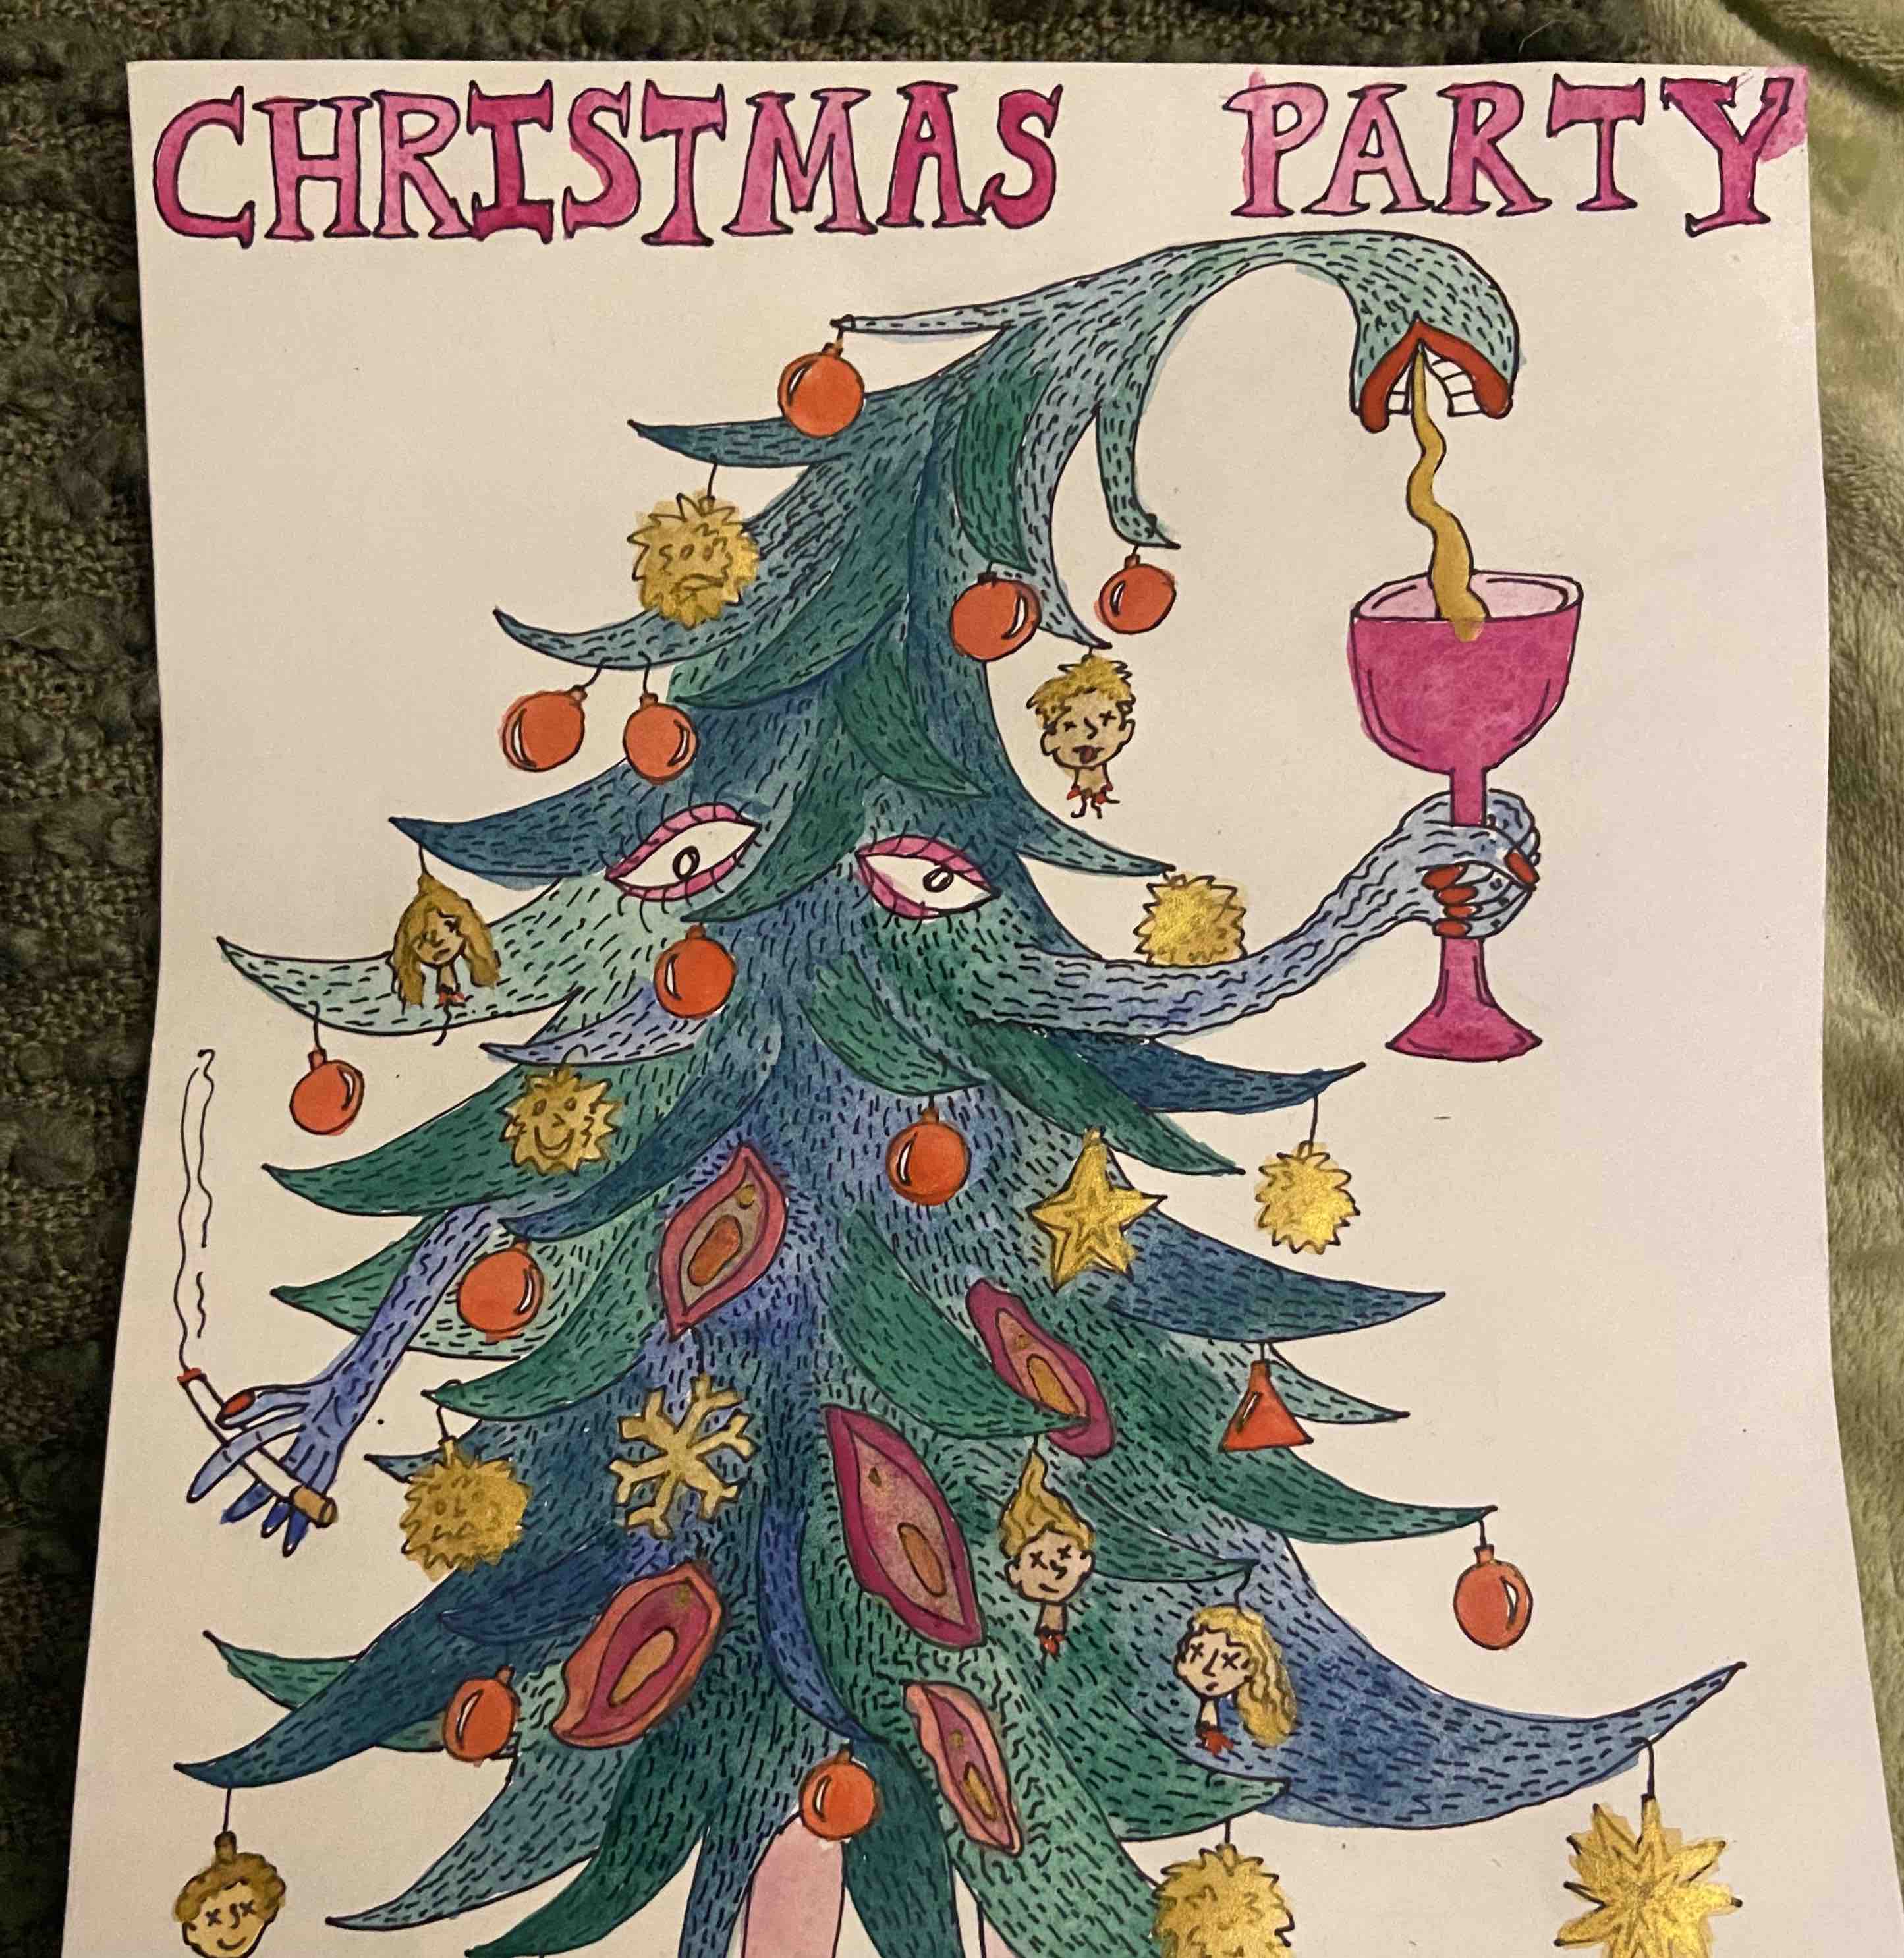 CHRISTMAS PARTY